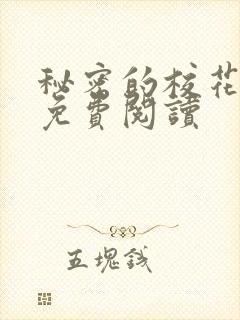 秘密的校花
免費閱讀
五塊錢